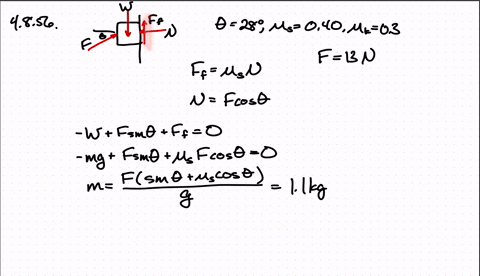 4.8.56.
W
F_f
N
F
θ
θ=28°, μ_s=0.40, μ_k=0.3
F=13N
F_f=μ_sN
N=Fcosθ
-W+Fsinθ+F_f=0
-mg+Fsinθ+μ_sFcosθ=0
m=F(sinθ+μ_scosθ)/g=1.1kg